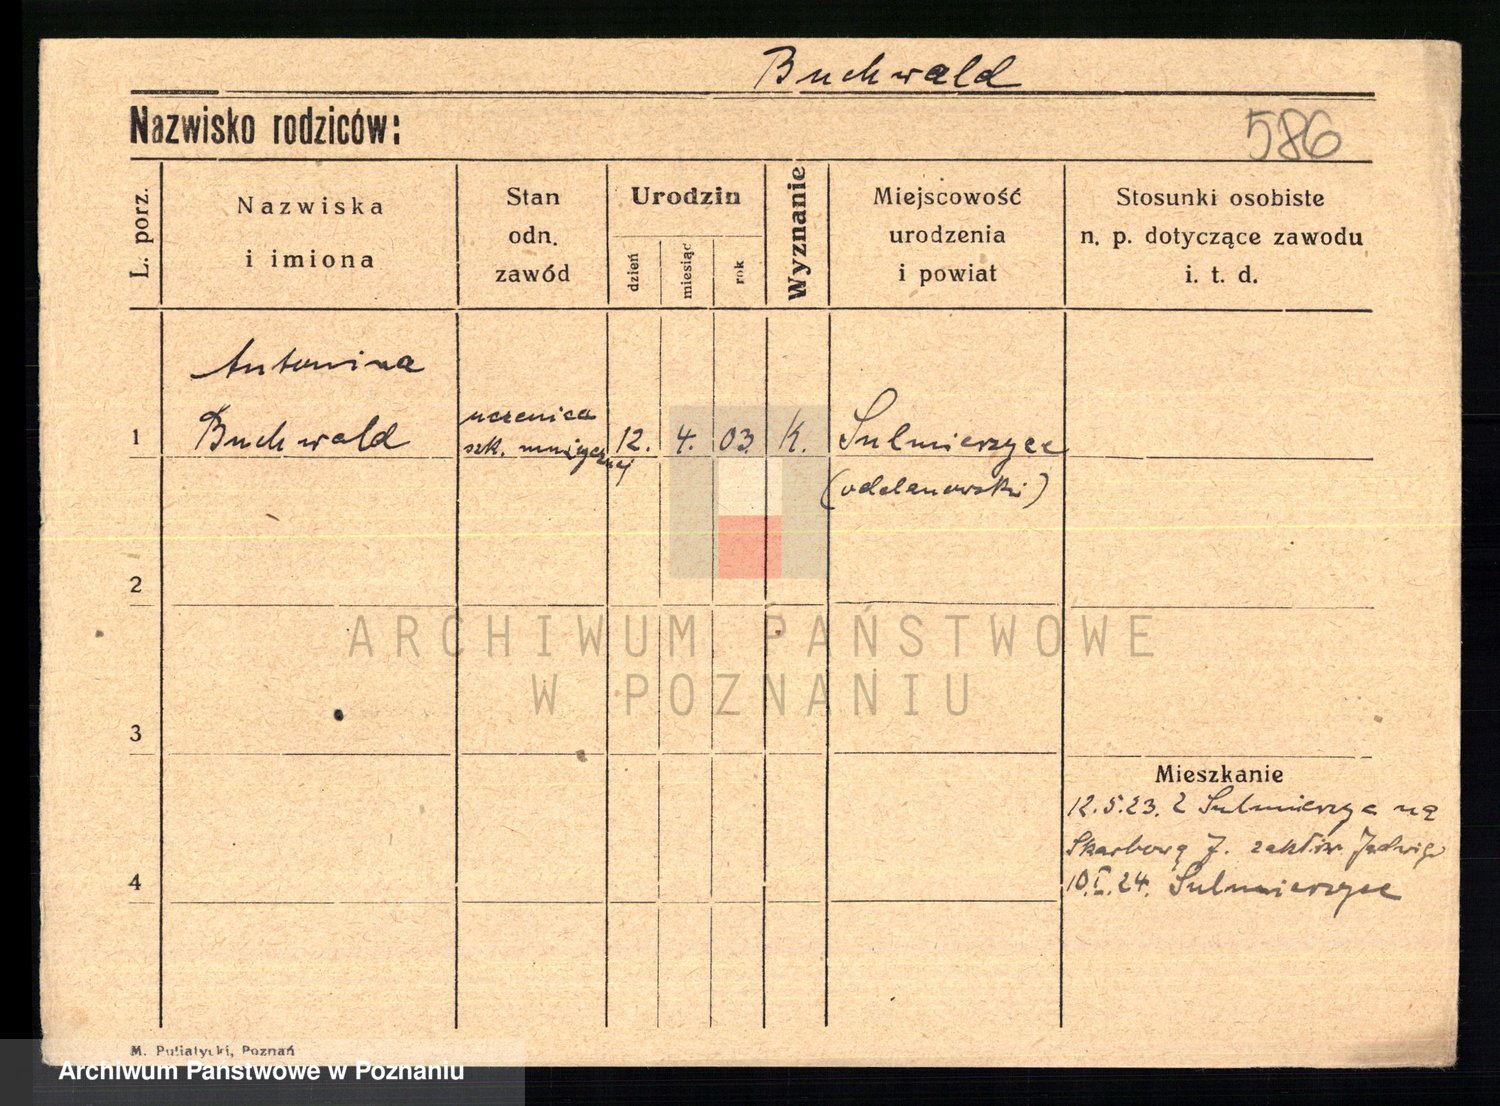 Buchwald
Nazwisko rodziców:
586
L. porz.
Nazwiska
i imiona
Stan
odn.
zawód
Urodzin
dzień
miesiąc
rok
Wyznanie
Miejscowość
urodzenia
i powiat
Stosunki osobiste
n. p. dotyczące zawodu
i. t. d.
Antonina
1 Buchwald
uczenica
szk. muzycznej
12. 4. 03. K. Sulmierzyce
(oddanowski)
2
ARCHIWUM PAŃSTWOWE
W POZNANIU
3
Mieszkanie
12.5.23. z Sulmierzyc na
Skarbową 7. zakłów Jadwigi
4
10.I.24. Sulmierzyce
M. Putiatycki, Poznań
Archiwum Państwowe w Poznaniu